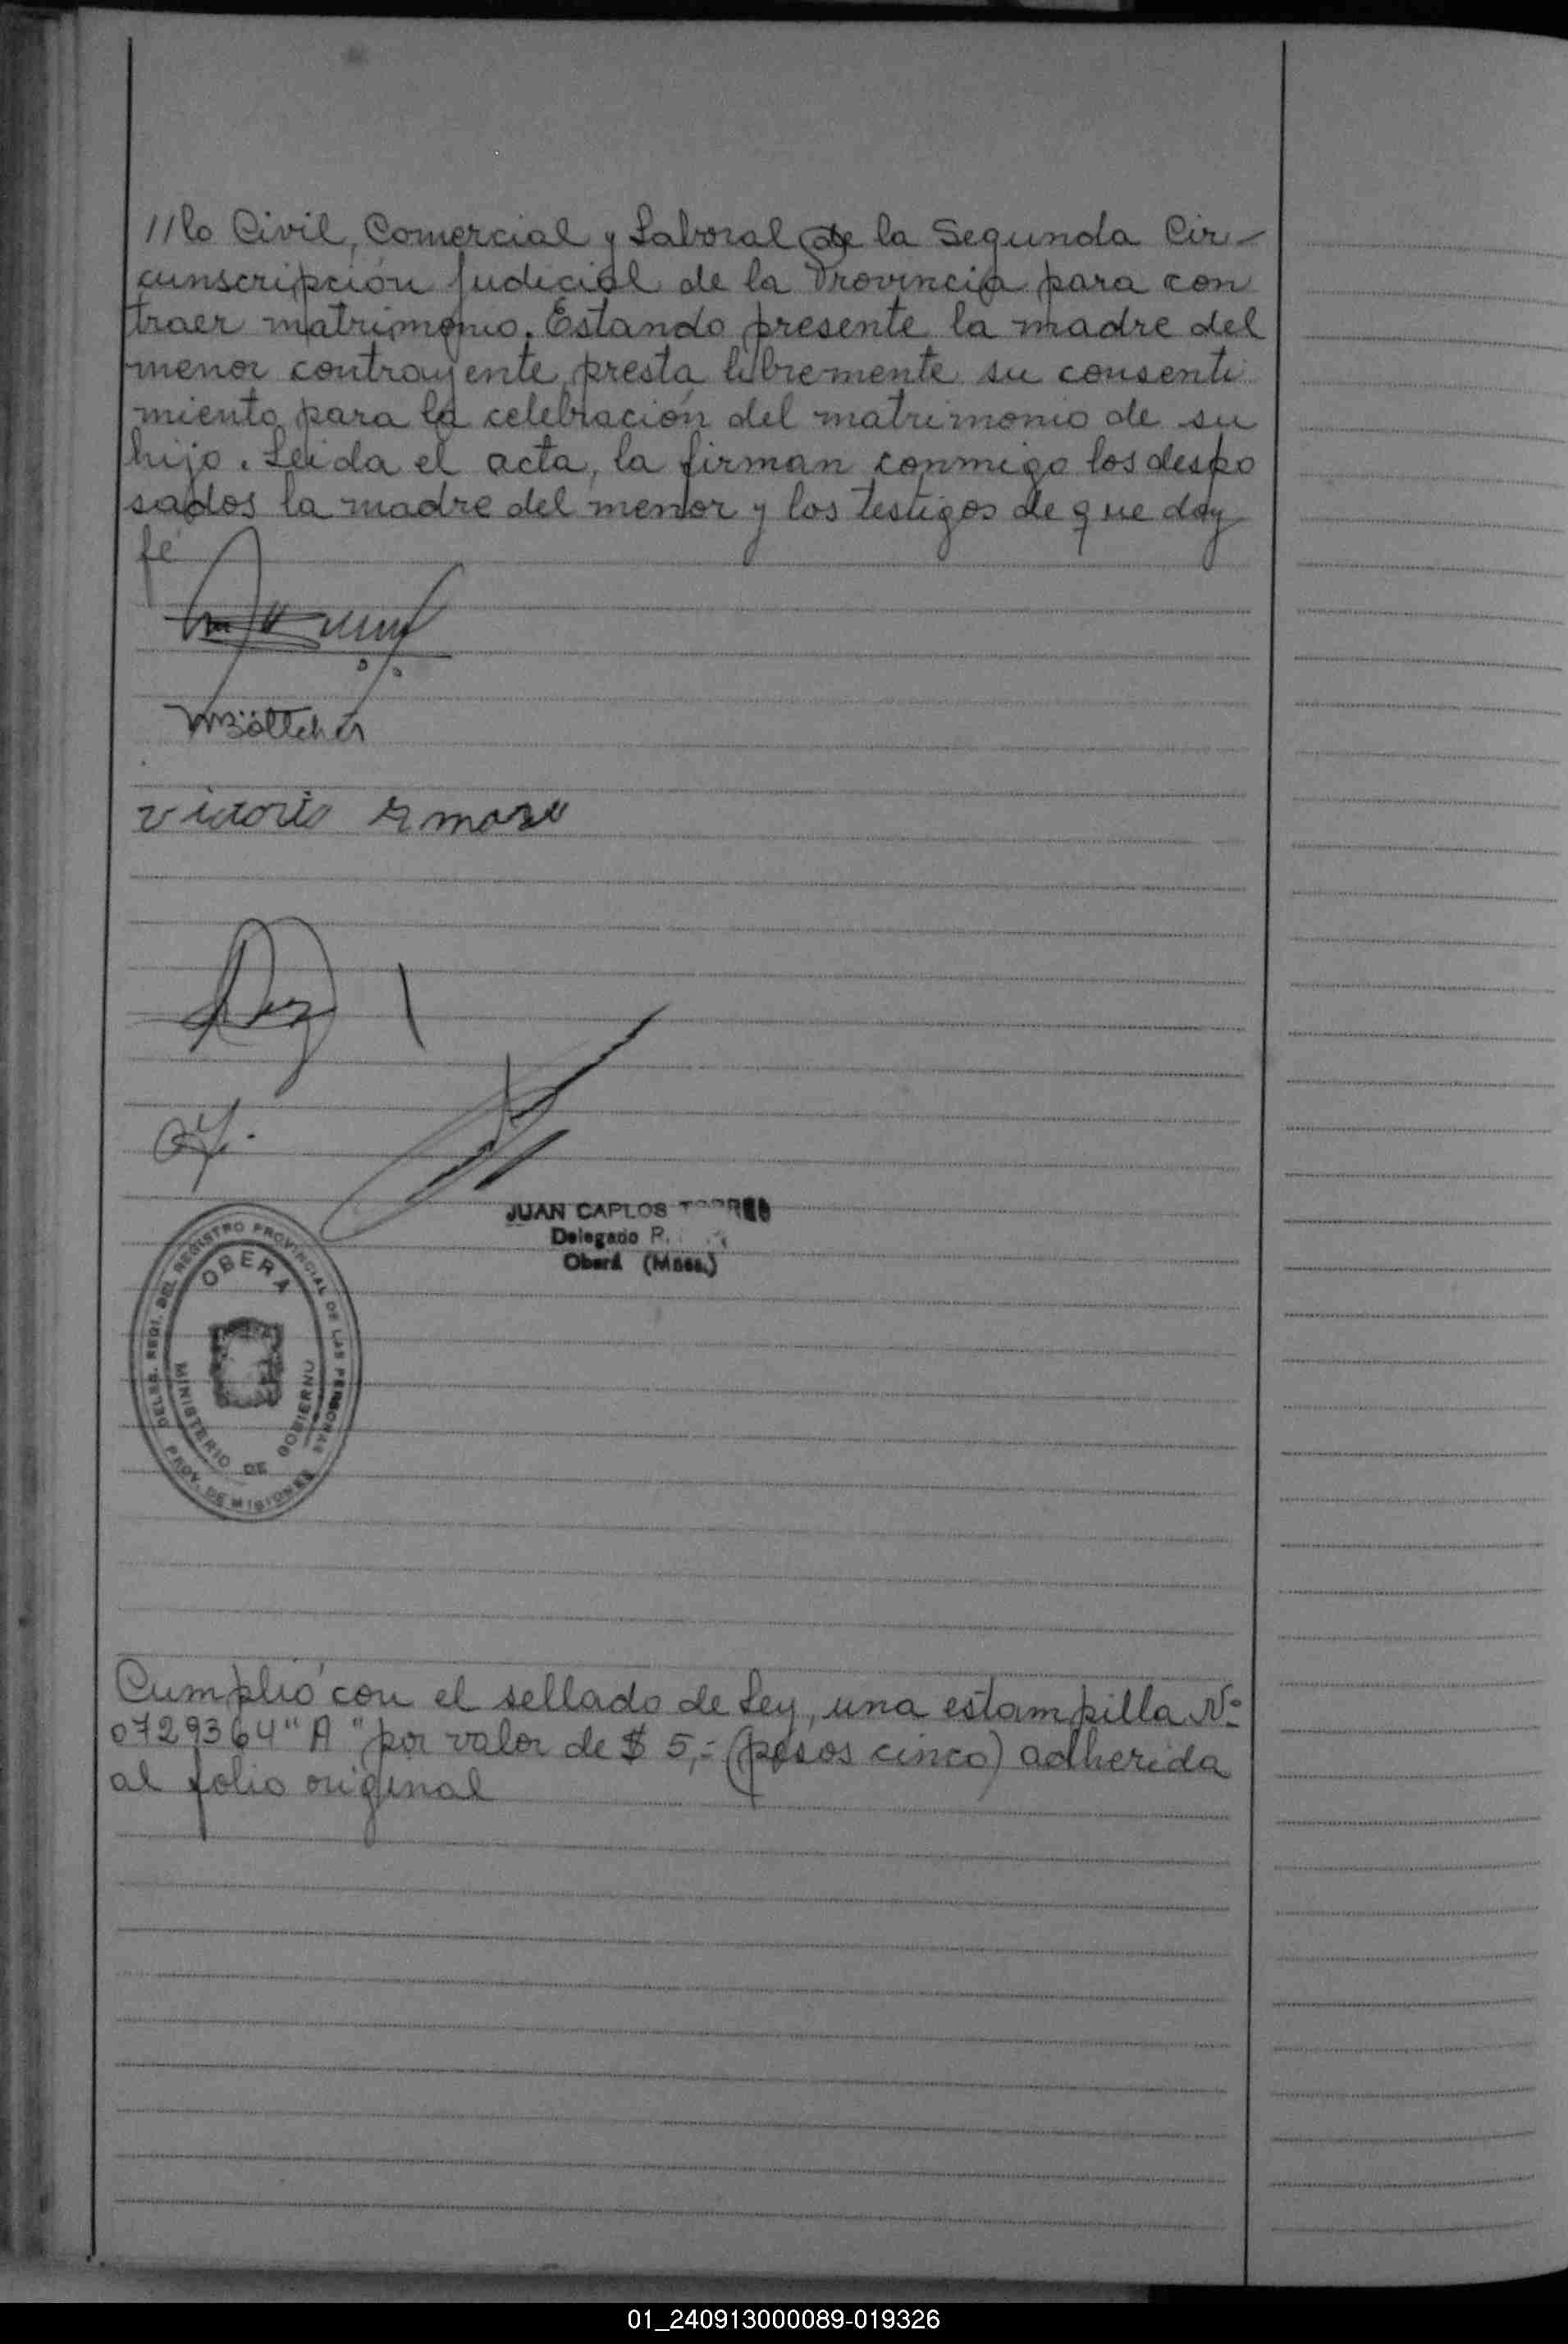 //lo Civil, Comercial y Laboral de la Segunda Cir-
cunscripción Judicial de la Provincia para con
traer matrimonio. Estando presente la madre del
menor contrayente, presta libremente su consenti
miento para la celebración del matrimonio de su
hijo. Leida el acta, la firman conmigo los despo
sados la madre del menor y los testigos de que doy
fé
Böttcher
victorio
JUAN CARLOS TORRES
Delegado R.
Oberá (Mnes.)
DELEG. REGI. DEL REGISTRO PROVINCIAL DE LAS PERSONAS
OBERA
MINISTERIO DE GOBIERNO
PROV. DE MISIONES
Cumplió con el sellado de Ley, una estampilla Nº
0729364 "A" por valor de $ 5,= (pesos cinco) adherida
al folio original
01_240913000089-019326